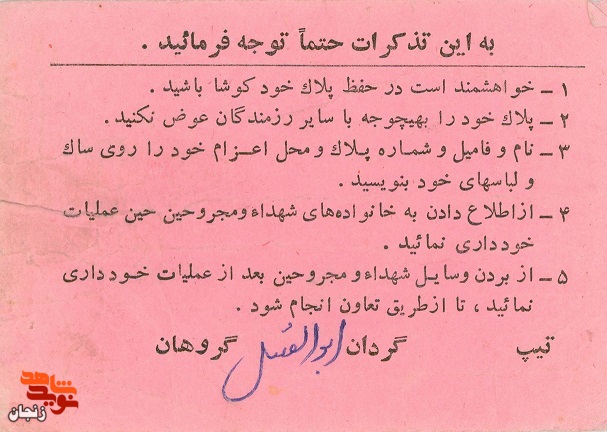 به این تذکرات حتماً توجه فرمائید .
۱ ـ خواهشمند است در حفظ پلاك خود کوشا باشید .
۲ ـ پلاك خود را بهیچوجه با سایر رزمندگان عوض نکنید .
۳ ـ نام و فامیل و شماره پلاك و محل اعزام خود را روی ساك
و لباسهای خود بنویسید .
۴ ـ ازاطلاع دادن به خانواده‌های شهداء ومجروحین حین عملیات
خودداری نمائید .
۵ ـ از بردن وسایل شهداء و مجروحین بعد از عملیات خودداری
نمائید ، تا ازطریق تعاون انجام شود .
تیپ گردان ابوالفضل گروهان
شاهد
نوید
زنجان